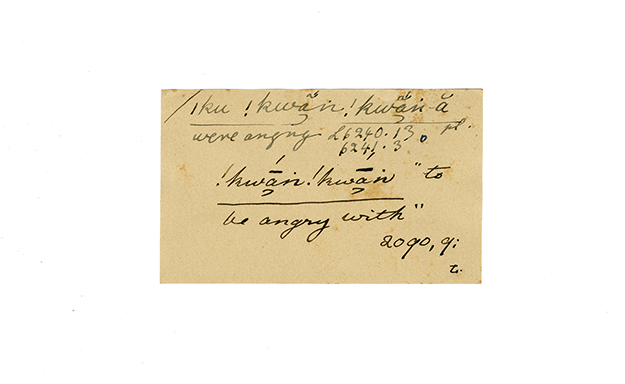 / ıku !kwa̰ñ !kwa̰ñ-ă
were angry L 6240.13, pl.
6241.3
!kwā́ṅ!kwā́ṅ "to
be angry with"
2090, 9:
t.